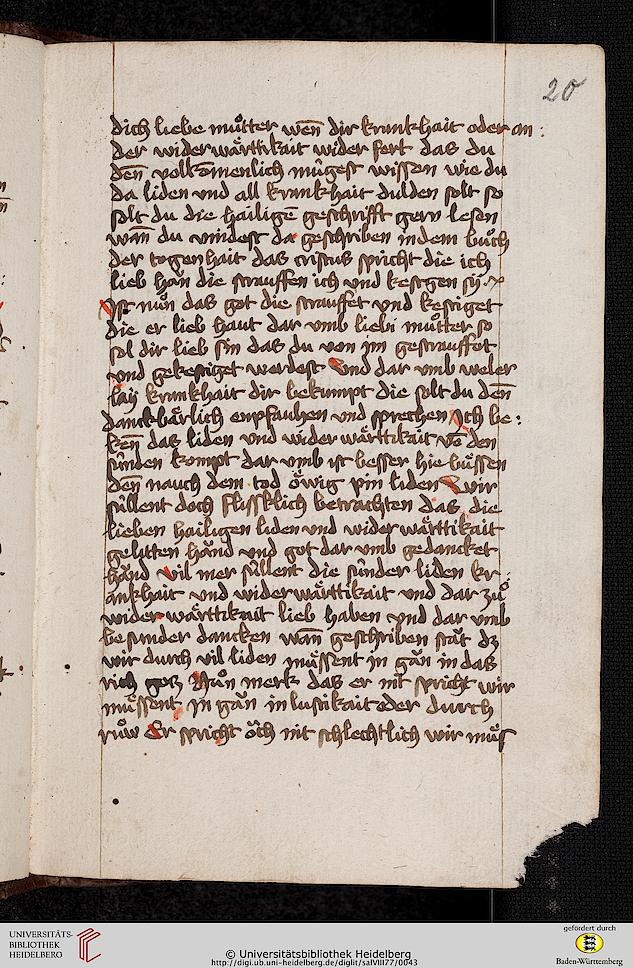 20
dich liebe můtter wen̄ dir krankhait oder an:
der widerwärttikait wider fert das du
den̄ volkom̄enlich mügest wissen wie du
da liden vnd all krankhait dulden solt so
solt du die hailigē geschrifft gern lesen
wan̄ du vindest da geschriben indem bůch
der togenhait das cristus spricht die ich
lieb hān die strauffen ich vnd kestgen sy
Ist nůn das got die strauffet vnd kestiget
die er lieb haut dar vmb liebi můtter so
sol dir lieb sin das du von jm gestrauffet
vnd gekestiget werdest Vnd dar vmb weler
lay krankhait dir bekumpt die solt du den̄
danckbärlich enpfauhen vnd sprechen Ich be:
ken̄ das liden vnd wider wärttikait vō den
sünden kompt dar vmb ist besser hie büssen
den̄ nauch dem tod öwig pin liden Wir
süllent doch flissklich betrachten das die
lieben hailigen liden vnd wider wärttikait
gelitten händ vnd got dar vmb gedancket
händ Vil mer süllent die sünder liden kr
ankhait vnd wider wärttikait vnd dar zů
wider wärttikait lieb haben vnd dar vmb
besunder dancken wan̄ geschriben stät dz
wir durch vil liden müssent jn gän in das
rich gotz Nůn merk das er nit spricht wir
müssent jn gän in lustikait oder durch
růw Er spricht öch nit schlechtlich wir müs
UNIVERSITÄTS-
BIBLIOTHEK
HEIDELBERG
© Universitätsbibliothek Heidelberg
http://digi.ub.uni-heidelberg.de/diglit/salVIII77/0043
gefördert durch
Baden-Württemberg